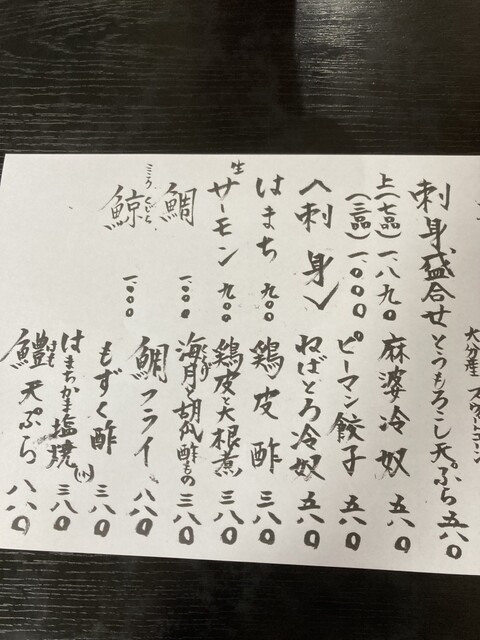 刺身盛合せ
上(七品)一、八九〇
(三品)一、〇〇〇
〈刺身〉
はまち 九〇〇
生サーモン 九〇〇
鯛 一、〇〇〇
鯨 くじら 一、〇〇〇
大分産 スウィートコーン
とうもろこし天ぷら 五八〇
麻婆冷奴 五八〇
ピーマン餃子 五八〇
ねばとろ冷奴 五八〇
鶏皮酢 三八〇
鶏皮と大根煮 三八〇
海月と胡瓜酢もの 三八〇
鯛フライ 八八〇
もずく酢 三八〇
はまちかま塩焼 三八〇
鱧 はも 天ぷら 八八〇